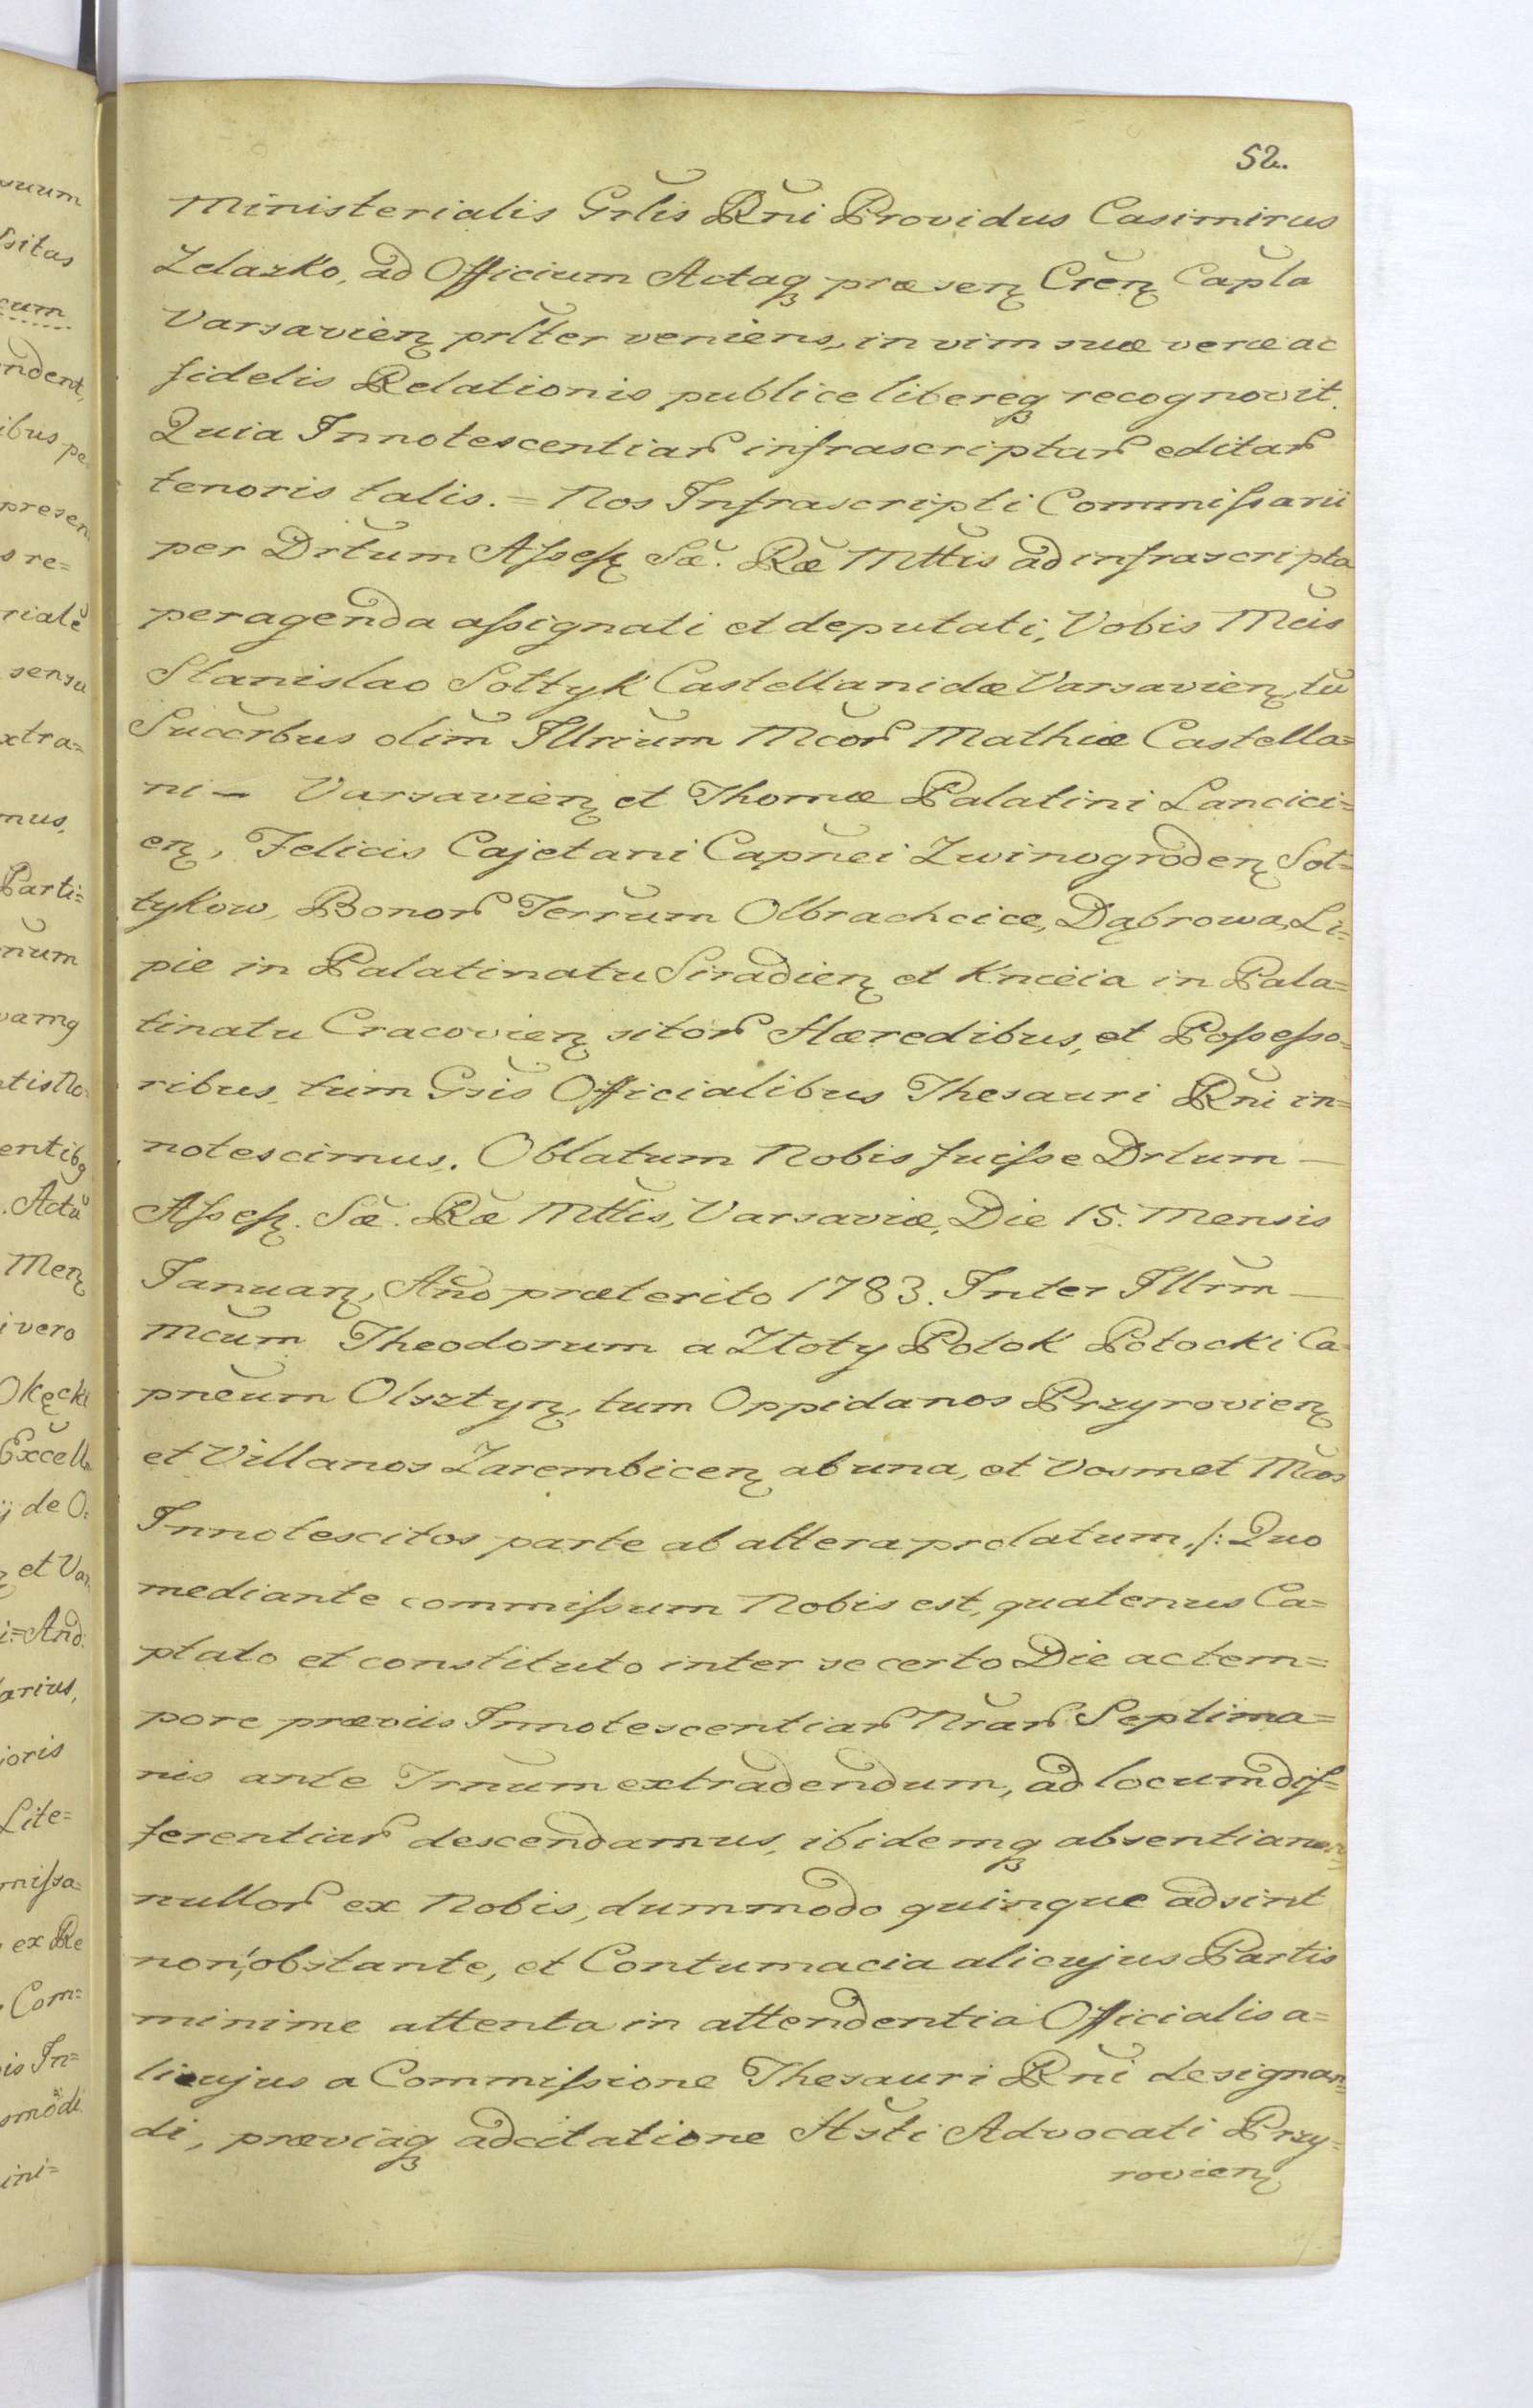 52.
Ministerialis Grlis Rni Providus Casimirus
Zelazko, ad Officium Actaq præsen Cren Capla
Varsavien prlter veniens, in vim suæ veræ ac
fidelis Relationis publice libereq recognovit.
Quia Innotescentiar infrascriptar editar
tenoris talis. = Nos Infrascripti Commiſsarii
per Drtum Aſseſs Sæ. Ræ Mttis ad infrascripta
peragenda aſsignati et deputati, Vobis Mcis
Stanislao Sołtyk Castellanidæ Varsavien, tu
Succrbus olim Illrium Mcor Mathiæ Castella=
ni — Varsavien et Thomæ Palatini Lancici=
en, Felicis Cajetani Capnei Zwinogroden Soł=
tykow, Bonor Terrum Olbrachcice, Dąbrowa, Li=
pie in Palatinatu Siradien et Knieia in Pala=
tinatu Cracovien sitor Hæredibus, et Poſseſso=
ribus, tum Gsis Officialibus Thesauri Rni in=
notescimus. Oblatum Nobis fuiſse Drtum —
Aſseſs. Sæ. Ræ Mttis, Varsaviæ, Die 15. Mensis
Januar, Año præterito 1783. Inter Illrm —
Mcum Theodorum a Złoty Potok Potocki Ca
pneum Olsztyn, tum Oppidanos Przyrovien
et Villanos Zarembicen ab una, et Vosmet Mcos
Innotescitos parte ab altera prolatum, /: Quo
mediante commiſsum Nobis est, quatenus Ca=
ptato et constituto inter se certo Die ac tem=
pore præviis Innotescentiar Nrar Septima=
nis ante Trnum extradendum, ad locum dif=
ferentiar descendamus, ibidemq absentia non=
nullor ex Nobis, dummodo quinque adsint
non obstante, et Contumacia alicujus Partis
minime attenta in attendentia Officialis a=
licujus a Commiſsione Thesauri Rni designan=
di, præviaq adcitatione Hsti Advocati Przy=
rovien